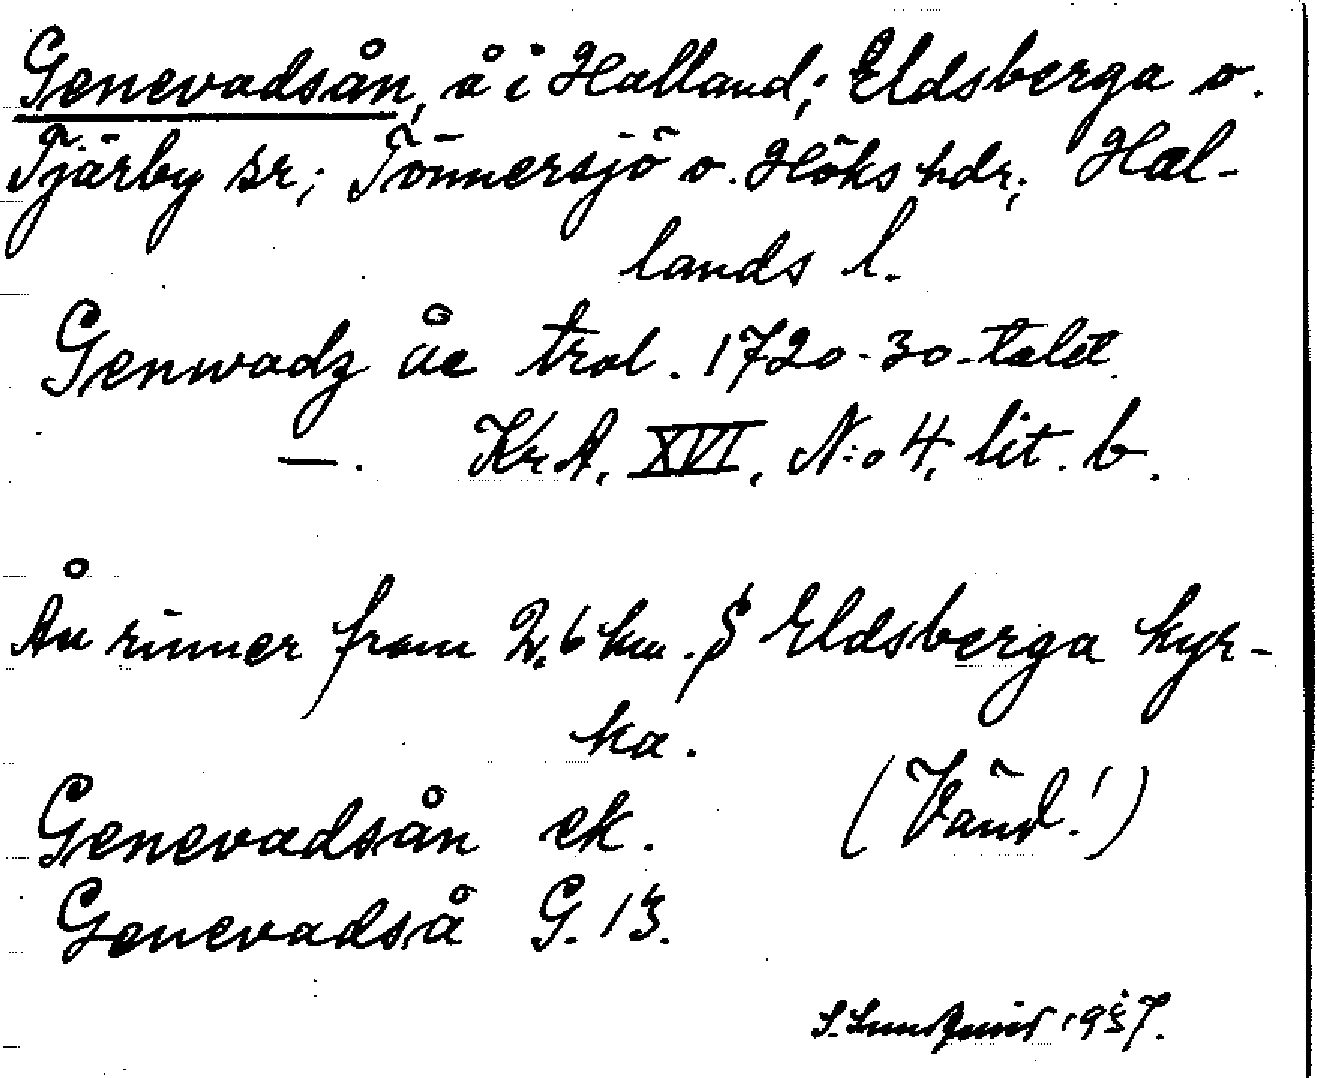 Genevadsån, å i Halland; Eldsberga o.
Tjärby sr; Tönnersjö o. Höks hdr; Hal-
lands l.
Genwadz åe trol. 1720-30-talet
—. KrA, XVI, N:o 4, lit. b.
Ån rinner fram 2,6 km. S Eldsberga kyr-
ka.
(Vänd!)
Genevadsån ek.
Genevadså G. 13.
S. Lundquist 1937.